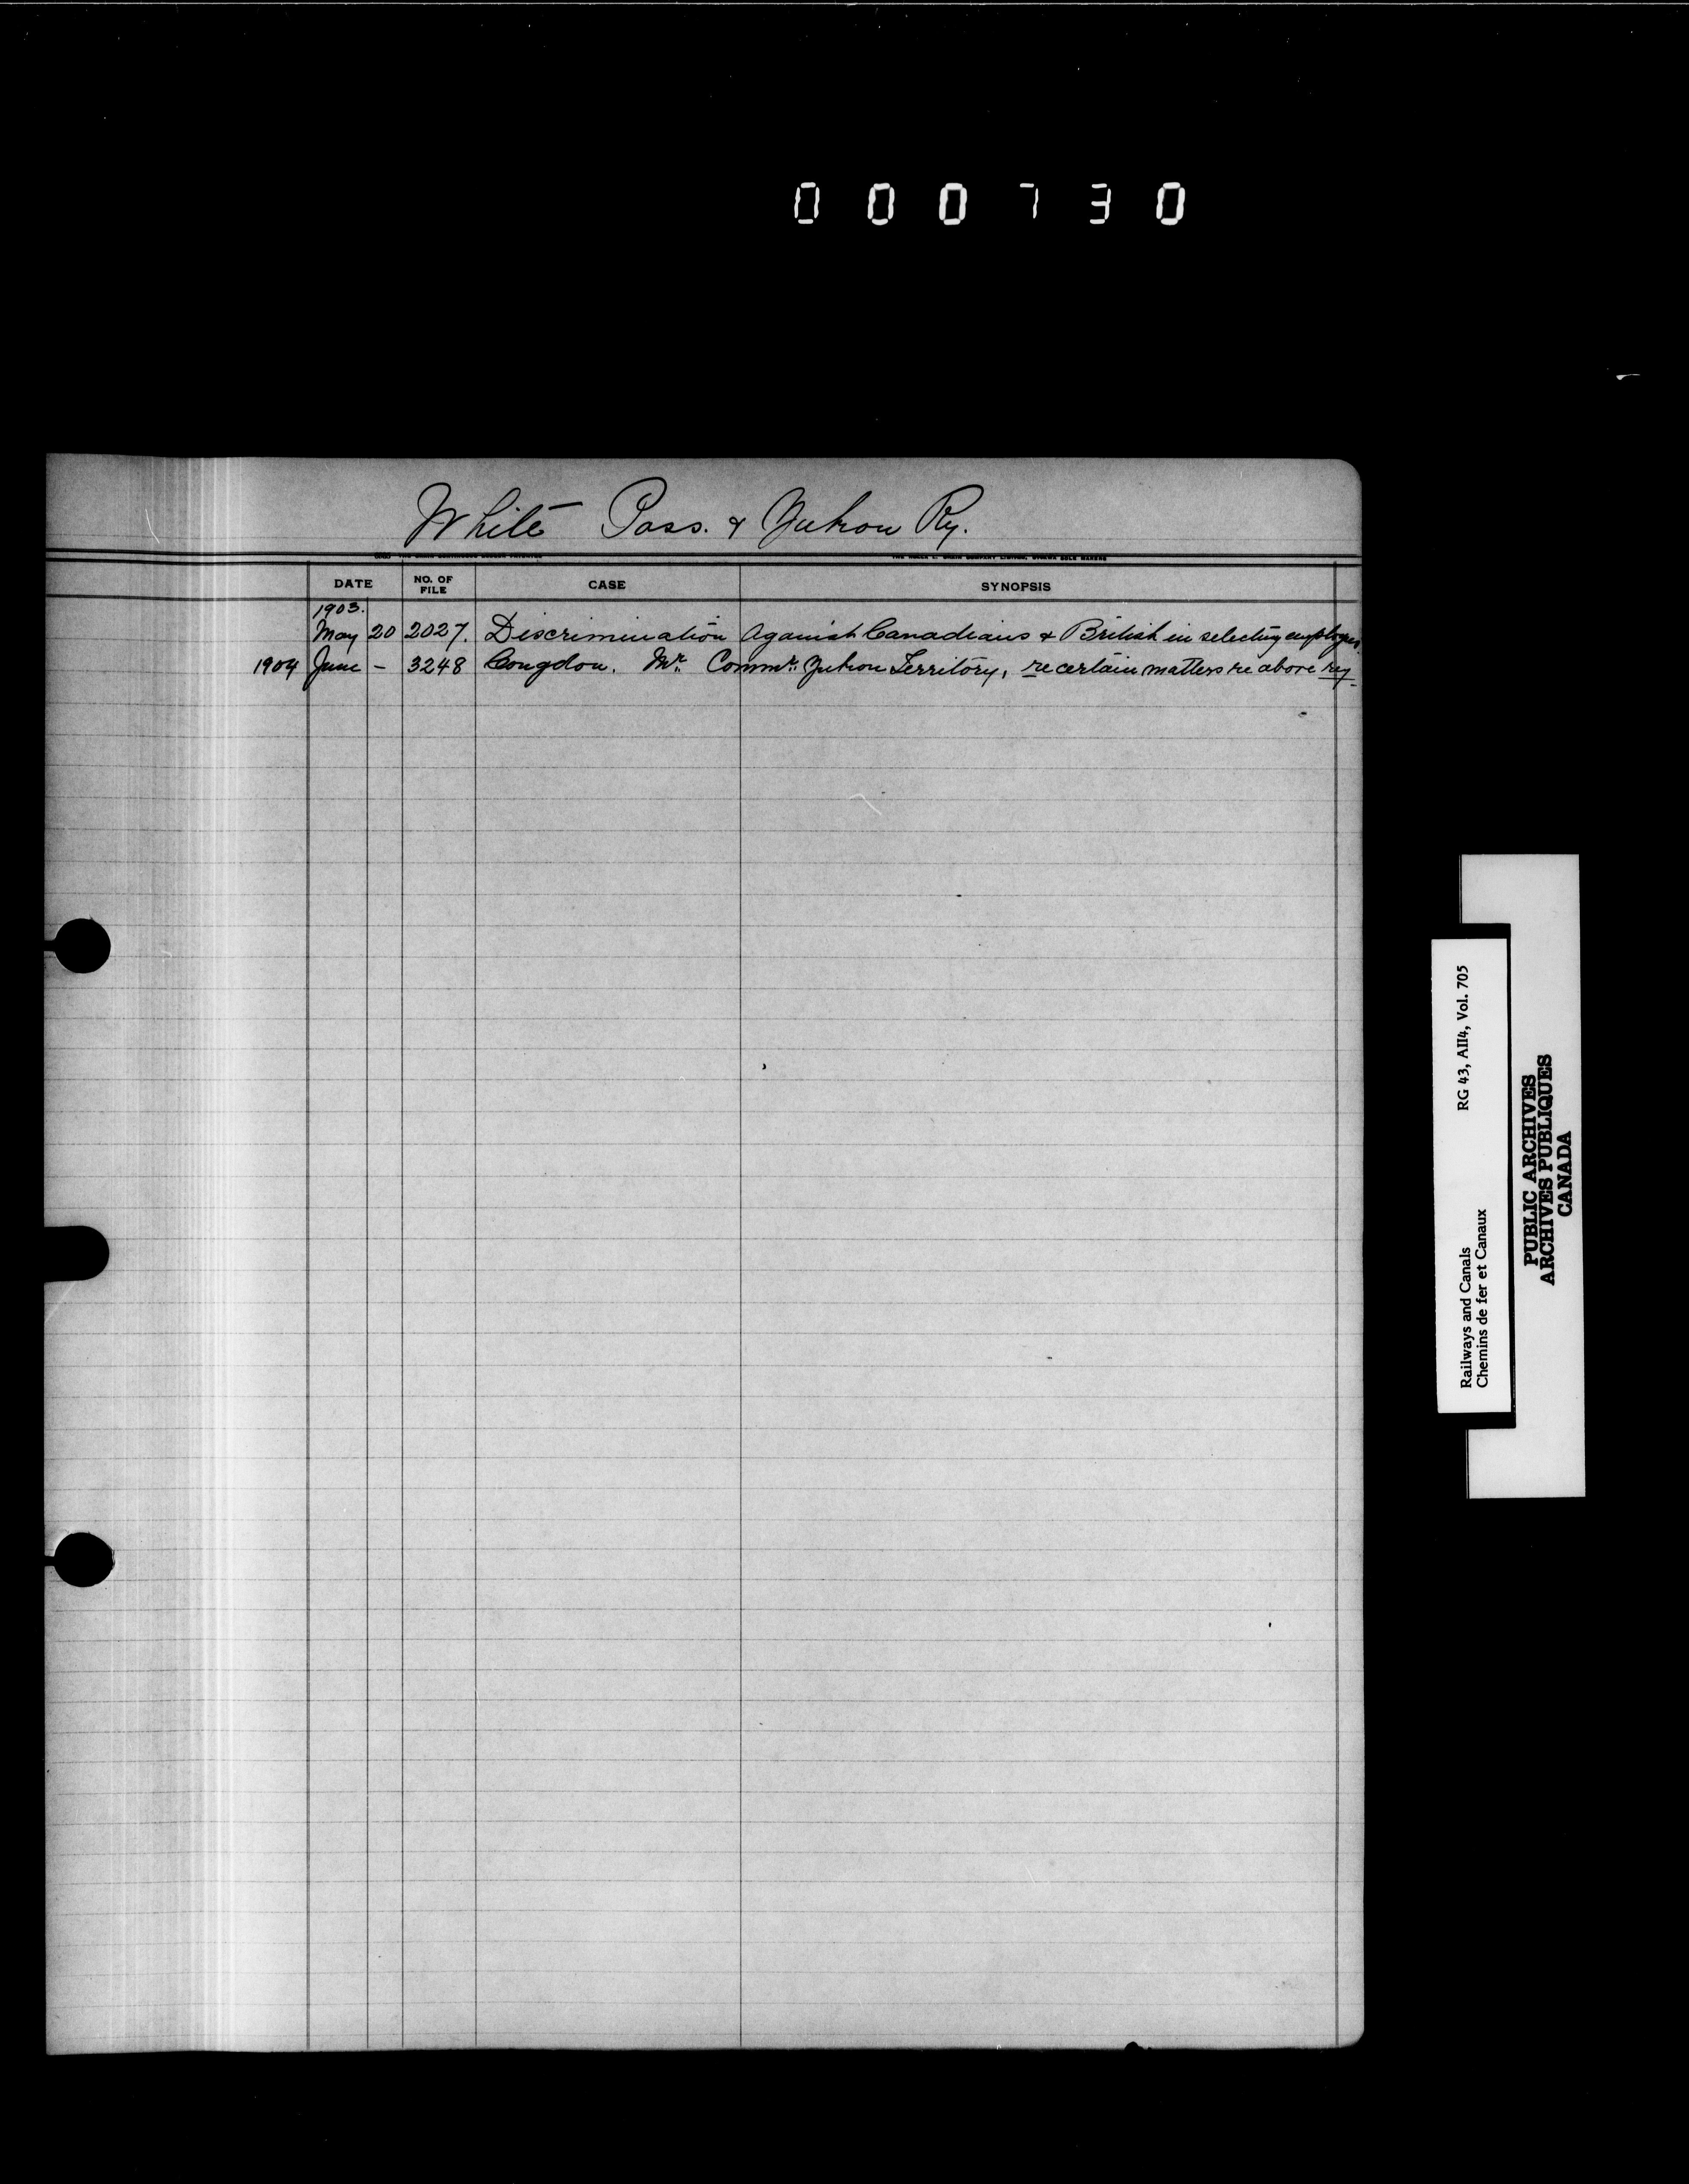 000730
White Pass. & Yukon Ry.
DATE NO. OF FILE CASE SYNOPSIS
1903.
May 20 2027. Discrimination Against Canadians & British in selecting employees.
1904 June – 3248 Congdon. Mr. Commr. Yukon Territory, re certain matters re above ry
RG 43, AII4, Vol. 705
Railways and Canals
Chemins de fer et Canaux
PUBLIC ARCHIVES
ARCHIVES PUBLIQUES
CANADA